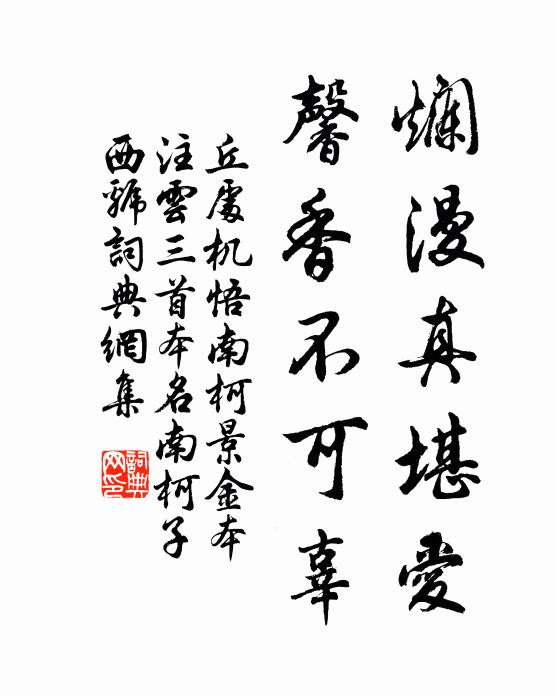 爛漫真堪愛
馨香不可辜
丘處机悟南柯景金本
注雲三首本名南柯子
西虢詞典網集
詞典
网印